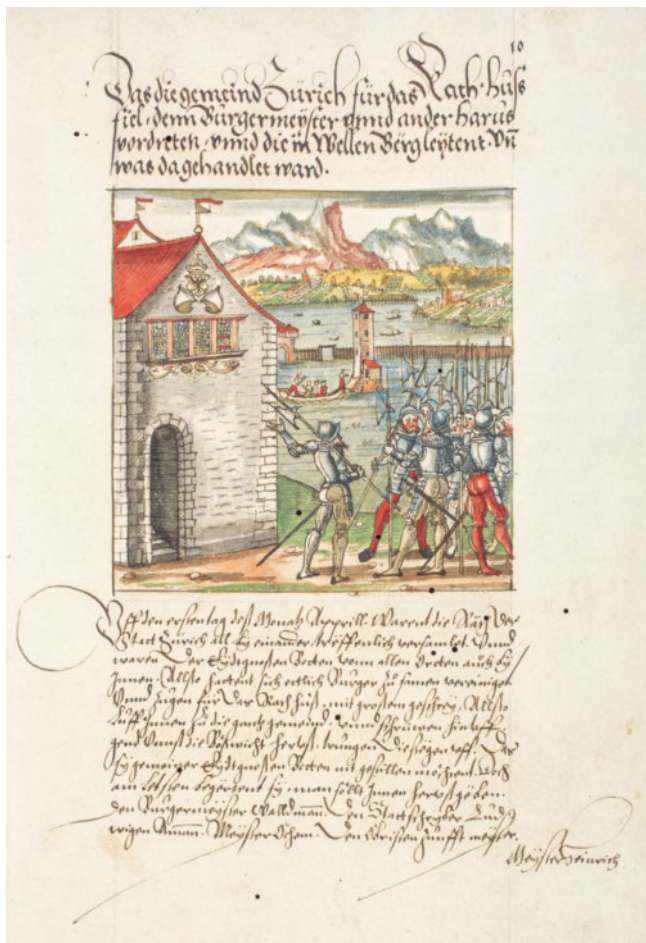 10
Das die gemeind Zürich für das Rath huß
fiel, denn Burgermeyster vnnd ander harus
vordreten, vnnd die in Wellen Berg leytent. Vn̄
was da gehandlet ward.
Vff den ersten tag deß Monatz Apprill. Warent die Rät der
Statt Zürich all by einander träffenlich versamlet. Vnnd
waren der Eydtgnossen Botten vonn allen Orten auch by
Innen. Allso hattent sich ettlich Burger zu samen vereiniget
Vnnd zugen für das Rath huß, mit großem geschrey. Allso
luff Innen zu die gantz gemeind, vnnd schrüwen hin vff
gend vnnß die Böswicht herus, trungen die stägen vff. Das
sy gemeiner Eydtgnossen Botten nit gestillen mochtent. Doch
am letsten begertent sy, man sollt Innen herus gäben
den Burgermeyster Walldman. Den Stattschryber Lud
wigen Aman. Meyster Öhem. Den obristen Zunfft meyster.
Meyster Heinrich